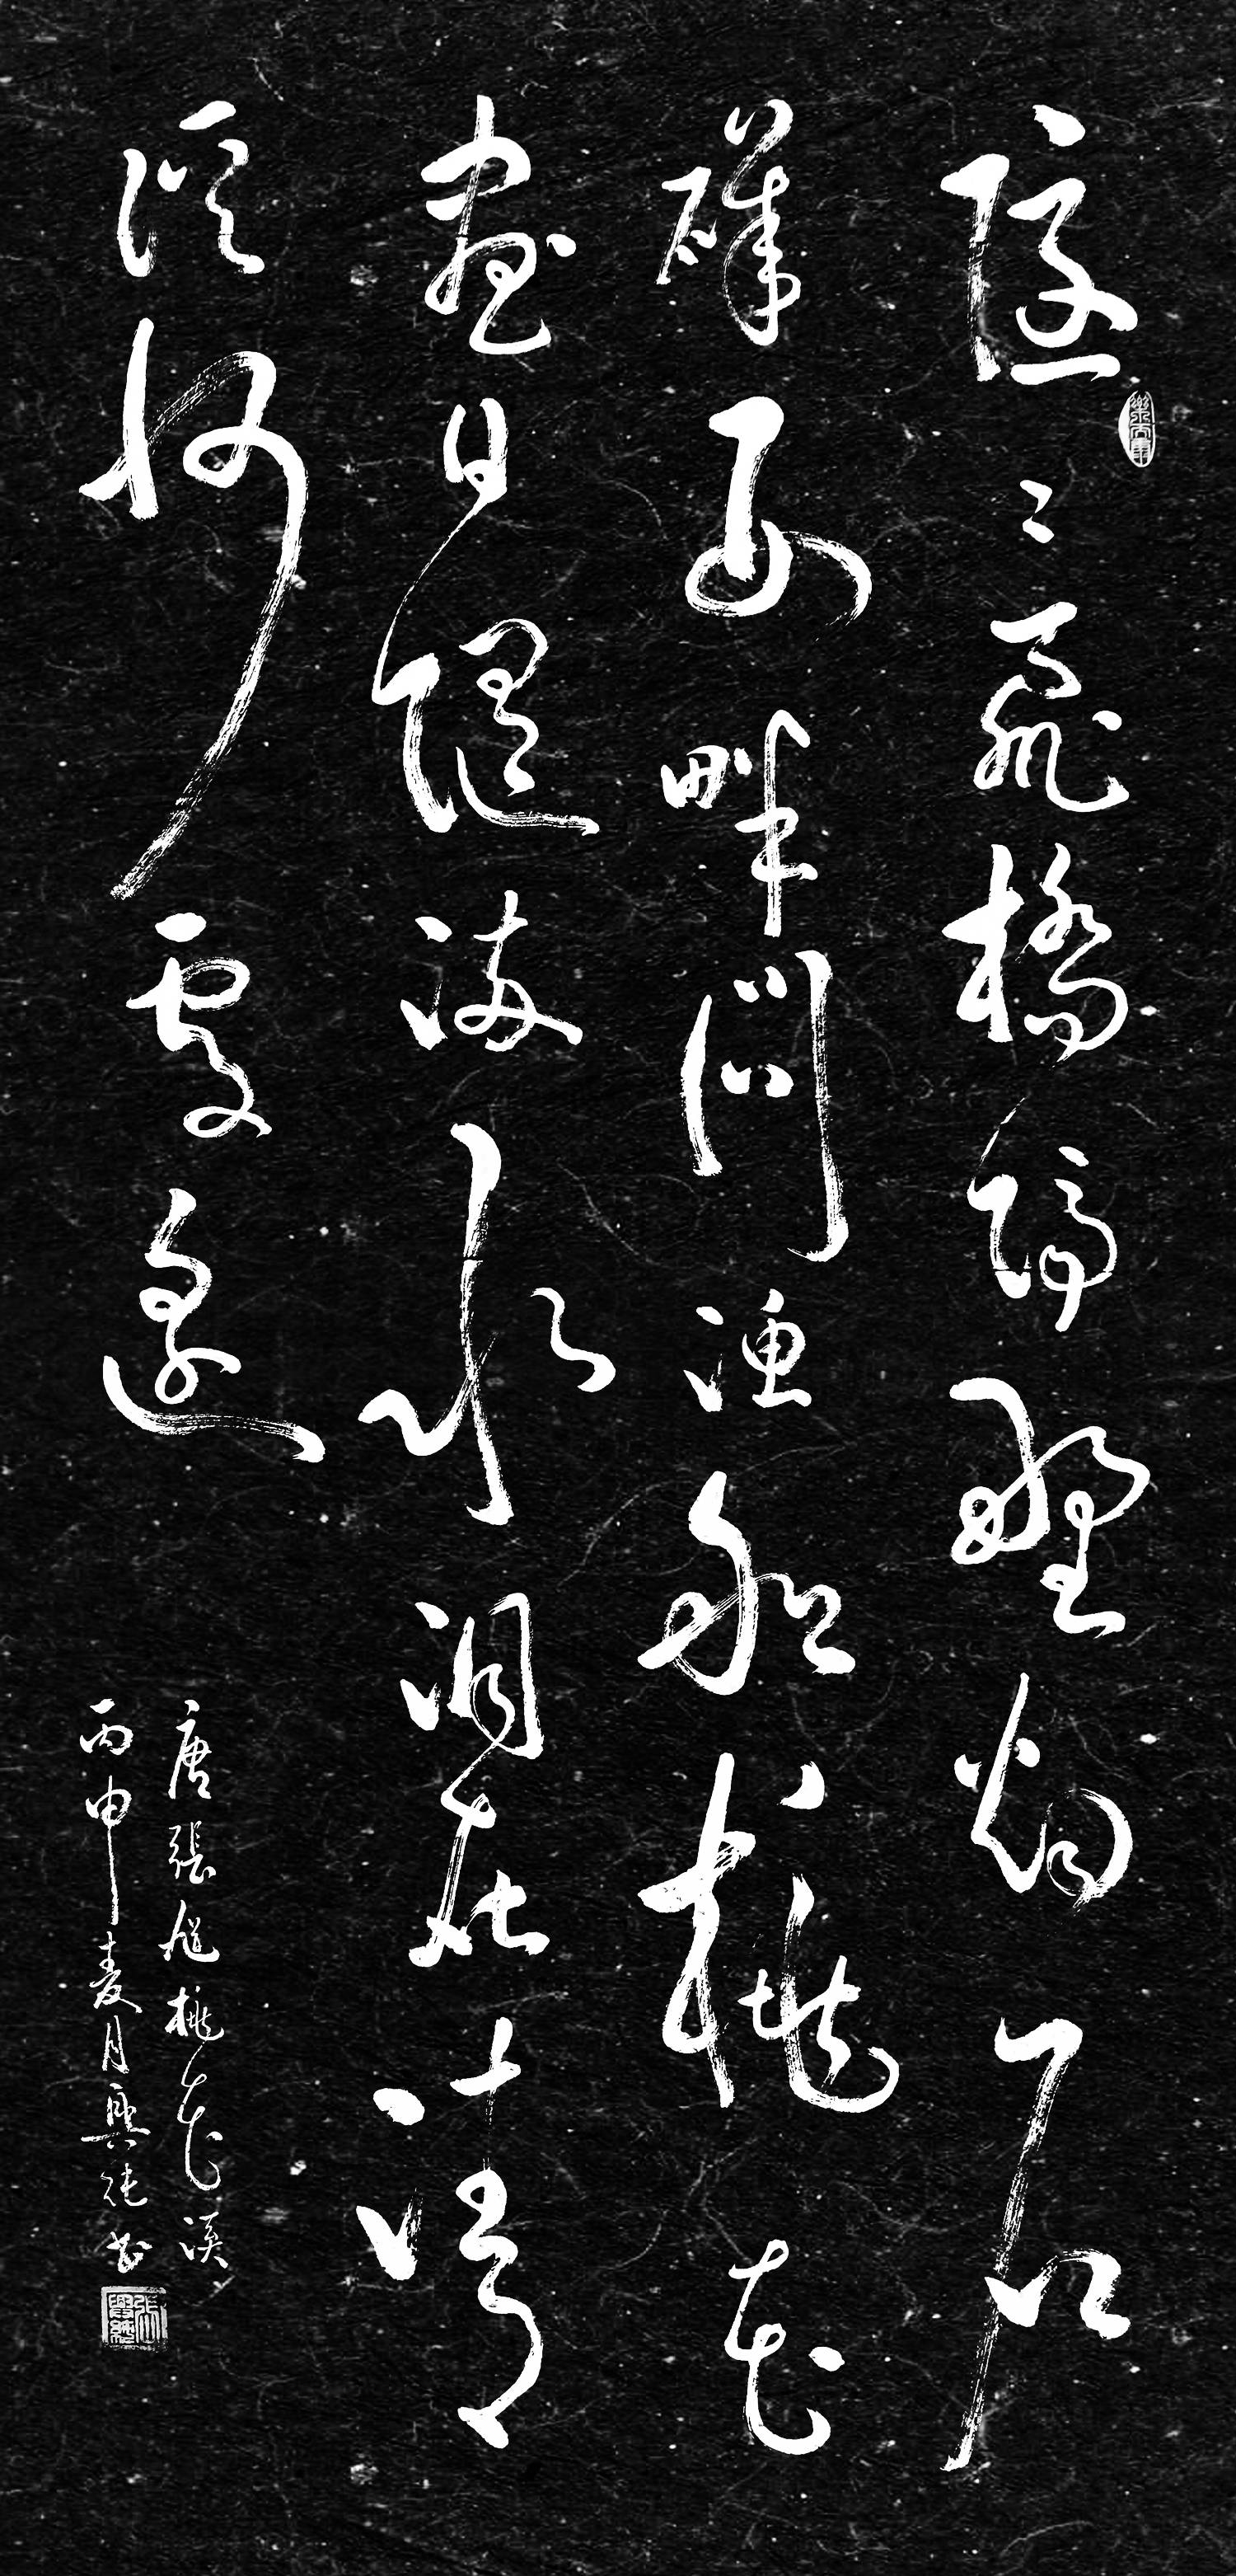 隱〻飛橋隔野烟石
磯西畔問漁船桃花
盡日隨流水洞在清
溪何處邊
唐張旭桃花溪
丙申麦月興书